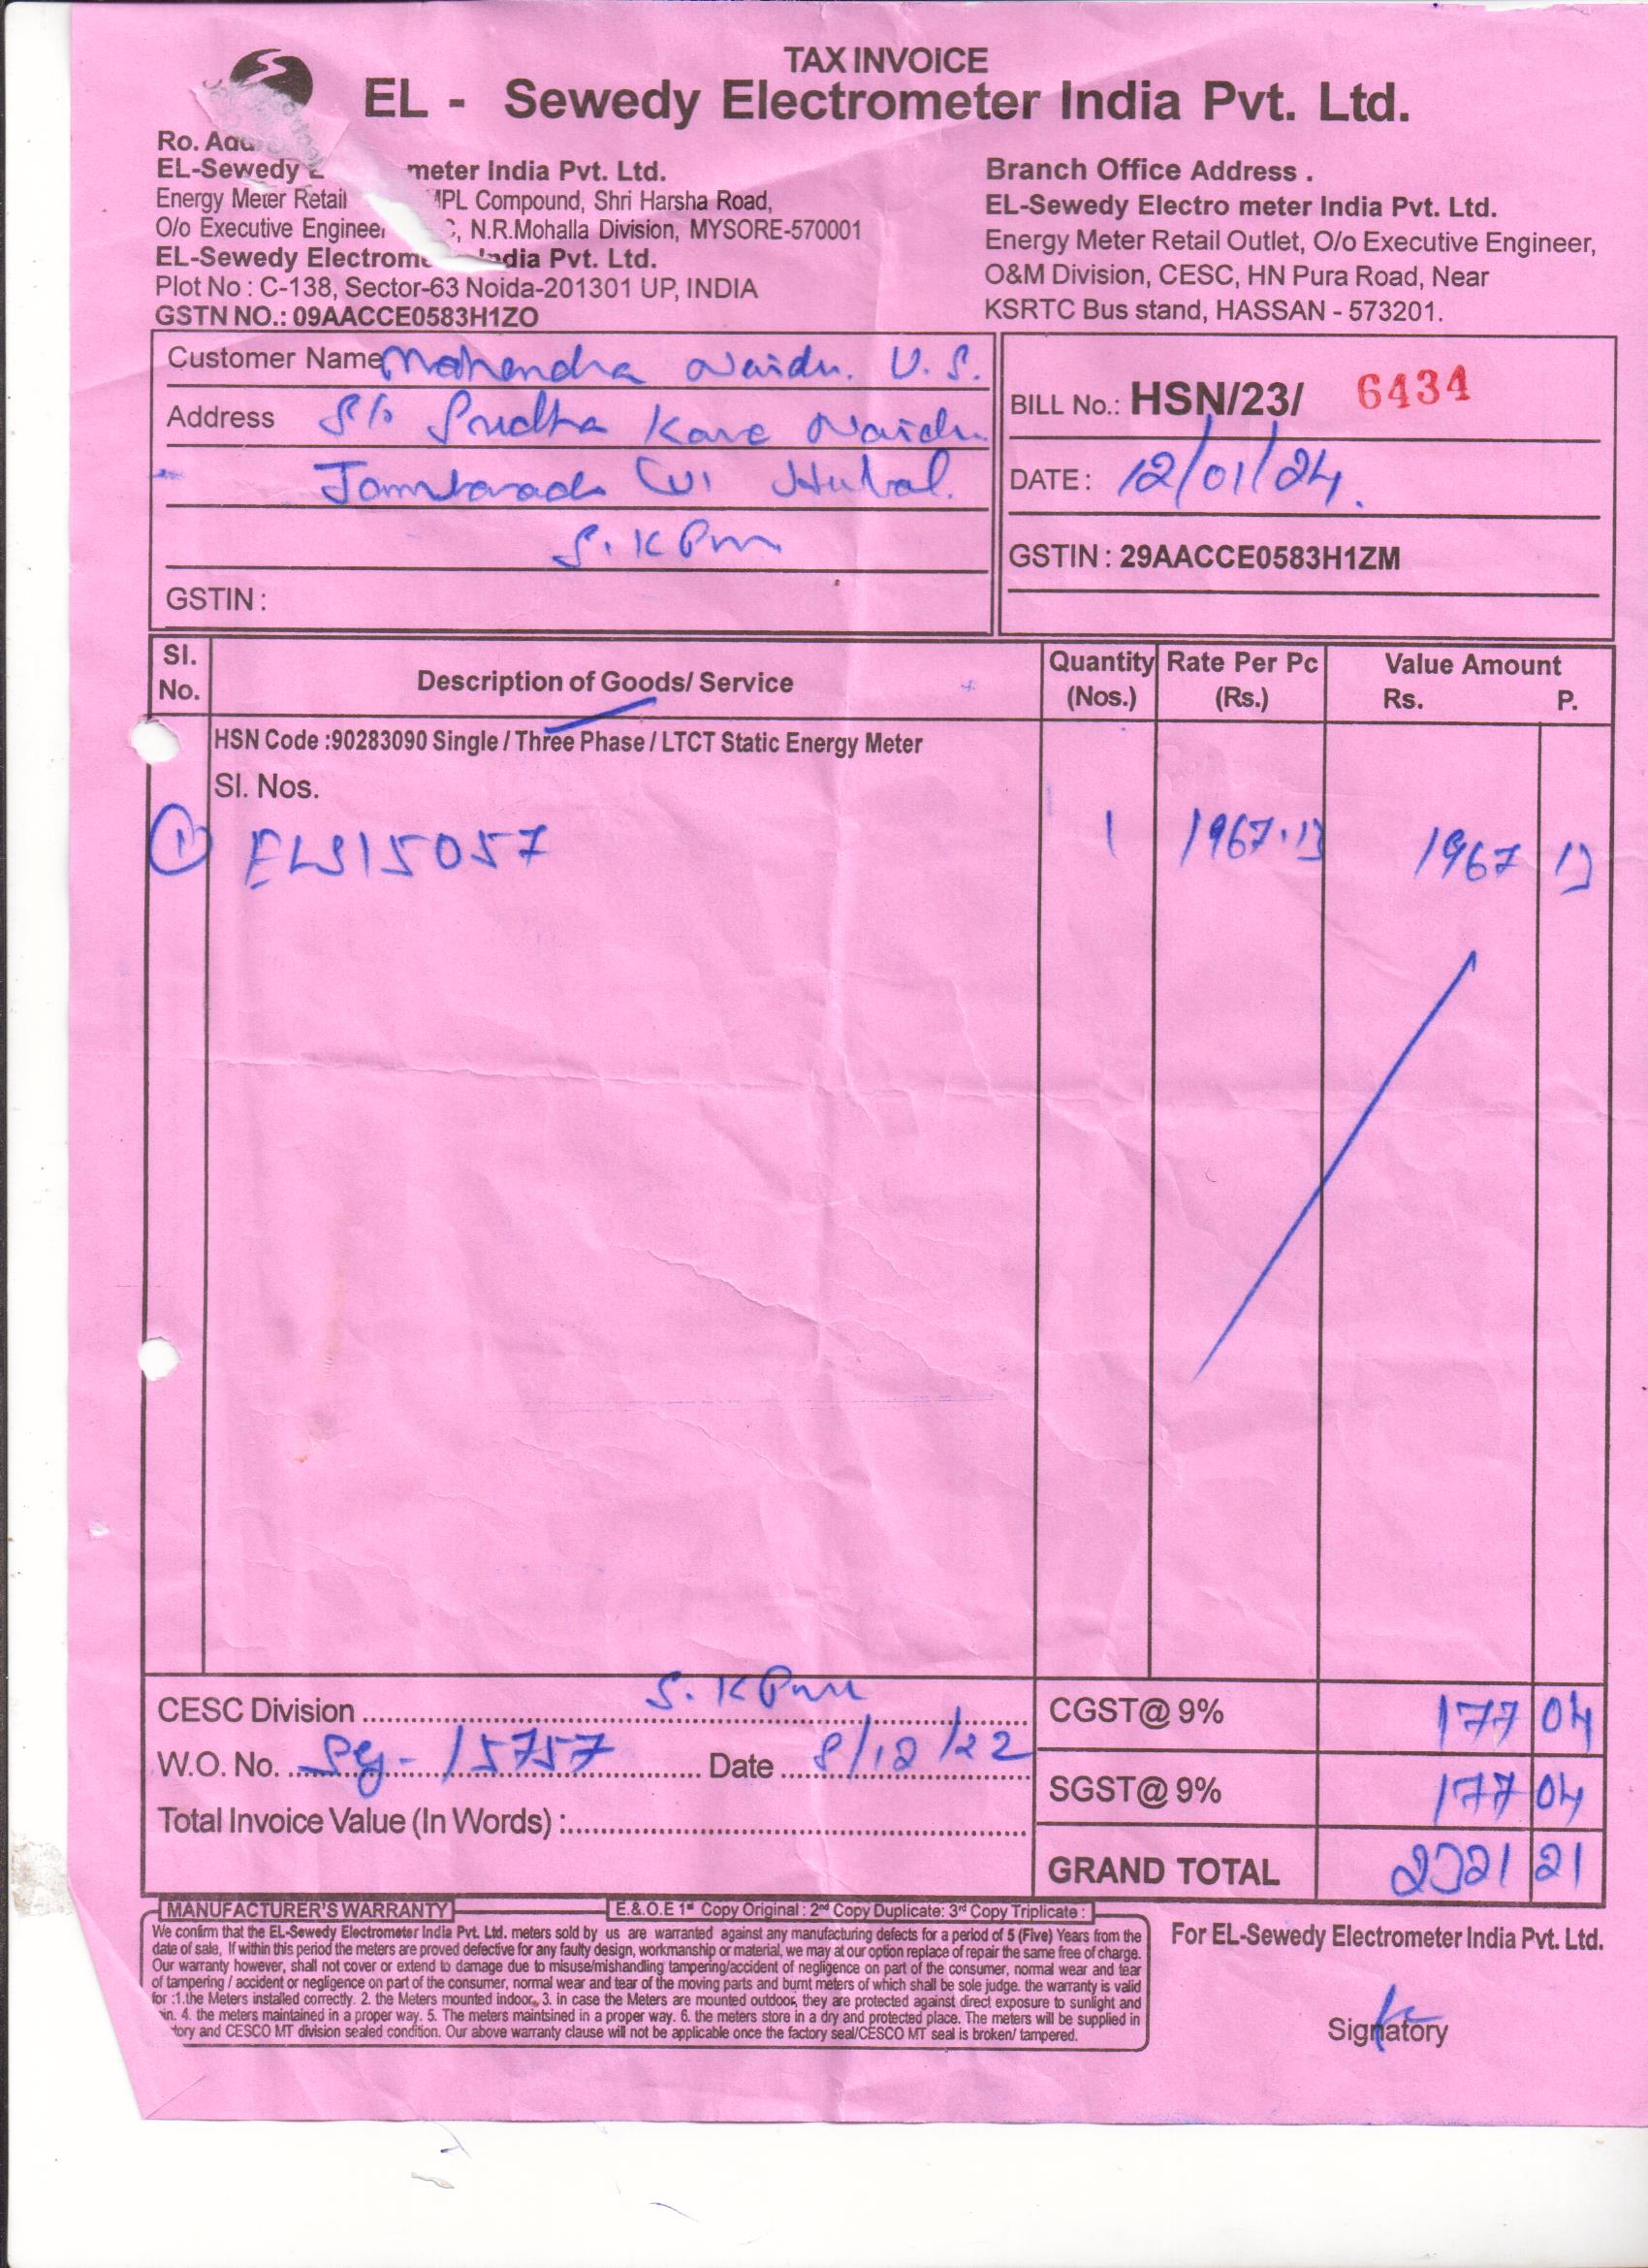 TAX INVOICE
EL - Sewedy Electrometer India Pvt. Ltd.
Ro.
EL-Sewedy meter India Pvt. Ltd.
Energy Meter Retail MPL Compound, Shri Harsha Road,
O/o Executive Engineer C, N.R.Mohalla Division, MYSORE-570001
EL-Sewedy Electrome India Pvt. Ltd.
Plot No : C-138, Sector-63 Noida-201301 UP, INDIA
GSTN NO.: 09AACCE0583H1ZO
Branch Office Address .
EL-Sewedy Electro meter India Pvt. Ltd.
Energy Meter Retail Outlet, O/o Executive Engineer,
O&M Division, CESC, HN Pura Road, Near
KSRTC Bus stand, HASSAN - 573201.
Customer Name Mahendra Naidu. U.S.
Address S/o Sudha Kara Naidu
Hubal.
S.K Pura
GSTIN :
BILL No.: HSN/23/ 6434
DATE : 12/01/24.
GSTIN : 29AACCE0583H1ZM
Sl. No. Description of Goods/ Service Quantity (Nos.) Rate Per Pc (Rs.) Value Amount Rs. P.
HSN Code :90283090 Single / Three Phase / LTCT Static Energy Meter
Sl. Nos.
1 ELS15057 1 1967.13 1967 13
CESC Division S.K Pura
W.O. No. 15757 Date 8/12/22
Total Invoice Value (In Words) :
CGST@ 9% 177 04
SGST@ 9% 177 04
GRAND TOTAL 2321 21
MANUFACTURER'S WARRANTY E.& O.E 1st Copy Original : 2nd Copy Duplicate: 3rd Copy Triplicate :
We confirm that the EL-Sewedy Electrometer India Pvt. Ltd. meters sold by us are warranted against any manufacturing defects for a period of 5 (Five) Years from the
date of sale, If within this period the meters are proved defective for any faulty design, workmanship or material, we may at our option replace of repair the same free of charge.
Our warranty however, shall not cover or extend to damage due to misuse/mishandling tampering/accident of negligence on part of the consumer, normal wear and tear
of tampering / accident or negligence on part of the consumer, normal wear and tear of the moving parts and burnt meters of which shall be sole judge. the warranty is valid
for :1.the Meters installed correctly. 2. the Meters mounted indoor, 3. in case the Meters are mounted outdoor, they are protected against direct exposure to sunlight and
in. 4. the meters maintained in a proper way. 5. The meters maintsined in a proper way. 6. the meters store in a dry and protected place. The meters will be supplied in
tory and CESCO MT division sealed condition. Our above warranty clause will not be applicable once the factory seal/CESCO MT seal is broken/ tampered.
For EL-Sewedy Electrometer India Pvt. Ltd.
Signatory